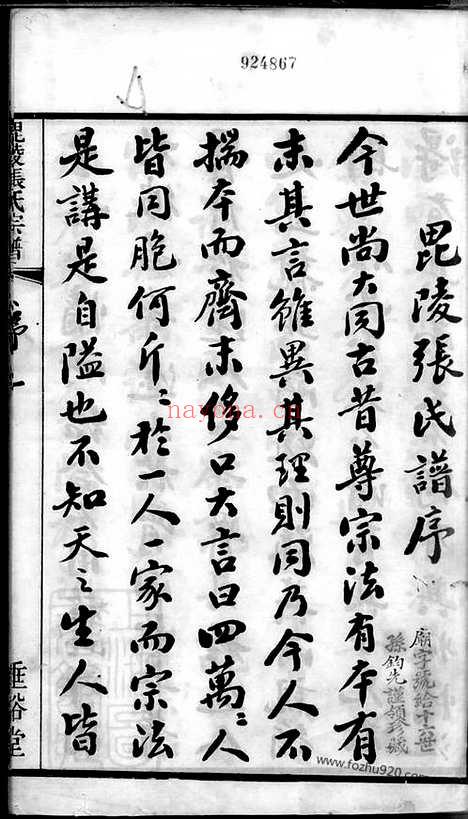 924867
毘陵張氏譜序
孫鈞先謹領珍藏
今世尚大同古昔尊宗法有本有
末其言雖異其理則同乃今人不
揣本而齊末侈口大言曰四萬〻人
皆同胞何斤〻於一人一家而宗法
是講是自隘也不知天之生人皆
毘陵張氏宗譜
垂裕堂
nayona.cn
www.fozhu920.com